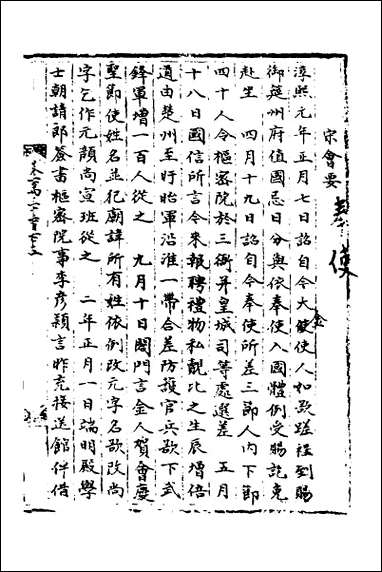 宋會要
奉使
淳熙元年正月七日詔自今大金使人如欲蹉程到賜
御筵州府值國忌日分與依奉使入國體例受賜訖免
赴坐　四月十九日詔自今奉使所差三節人內下節
四十人令樞密院於三衙并皇城司等處選差　五月
十八日國信所言今來報聘禮物私覿比之生辰增倍
道由楚州至盱眙軍沿淮一帶合差防護官兵欲下武
鋒軍增一百人從之　九月十日閤門言金人賀會慶
聖節使姓名並犯廟諱所有姓依例改元字名欲改尚
字乞作元顏尚宣班從之　二年正月一日端明殿學
士朝請郎簽書樞密院事李彥穎言昨充接送館伴借